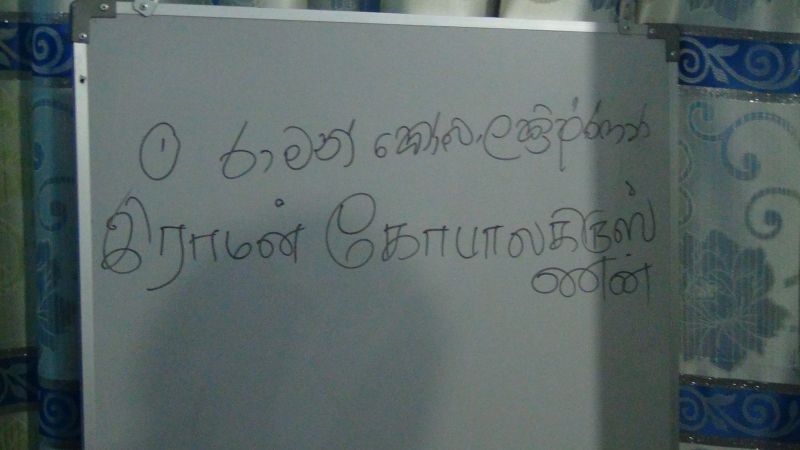 ① රාමන් ගෝපාලක්‍රිෂ්ණන්
இராமன் கோபாலகிருஸ்
ணன்